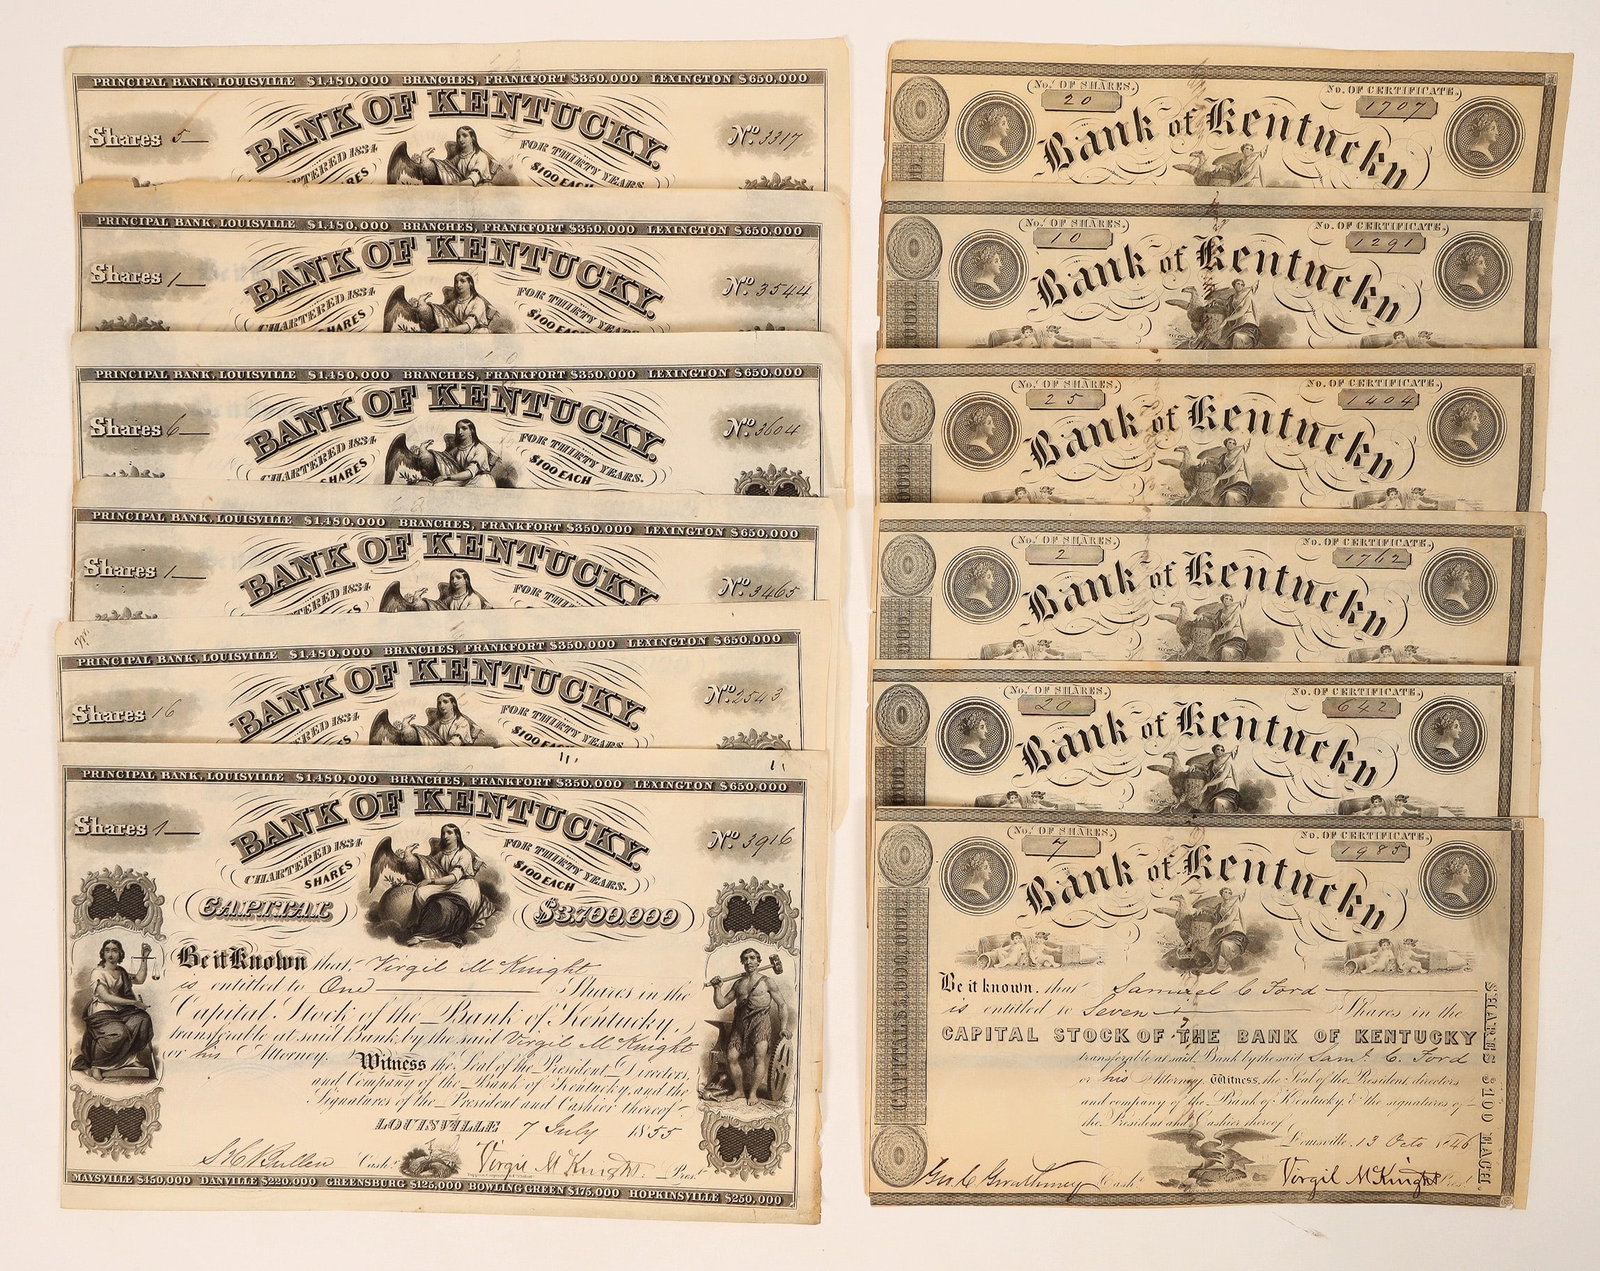 PRINCIPAL BANK, LOUISVILLE $1,480,000 BRANCHES, FRANKFORT $350,000 LEXINGTON $650,000
Shares 5
BANK OF KENTUCKY.
No 3317
CHARTERED 1834
FOR THIRTY YEARS.
SHARES
$100 EACH
PRINCIPAL BANK, LOUISVILLE $1,480,000 BRANCHES, FRANKFORT $350,000 LEXINGTON $650,000
Shares 1
BANK OF KENTUCKY.
No 3544
CHARTERED 1834
FOR THIRTY YEARS
SHARES
$100 EACH
PRINCIPAL BANK, LOUISVILLE $1,480,000 BRANCHES, FRANKFORT $350,000 LEXINGTON $650,000
Shares 6
BANK OF KENTUCKY.
No 3604
CHARTERED 1834
FOR THIRTY YEARS.
SHARES
$100 EACH
PRINCIPAL BANK, LOUISVILLE $1,480,000 BRANCHES, FRANKFORT $350,000 LEXINGTON $650,000
Shares 1
BANK OF KENTUCKY
No 3465
FOR THIRTY
PRINCIPAL BANK, LOUISVILLE $1,480,000 BRANCHES, FRANKFORT $350,000 LEXINGTON $650,000
Shares 16
BANK OF KENTUCKY.
No 2543
FOR THIRTY YEARS.
PRINCIPAL BANK, LOUISVILLE $1,480,000 BRANCHES, FRANKFORT $350,000 LEXINGTON $650,000
Shares 1
BANK OF KENTUCKY.
No 3916
CHARTERED 1834
FOR THIRTY YEARS.
SHARES
$100 EACH
CAPITAL
$3,700,000
Be it Known that Virgil McKnight
is entitled to One Shares in the
Capital Stock of the Bank of Kentucky,
transferable at said Bank, by the said Virgil McKnight
or his Attorney. Witness the Seal of the President, Directors,
and Company of the Bank of Kentucky, and the
Signatures of the President and Cashier thereof
LOUISVILLE 7 July 1855
Cash. Virgil McKnight Prest
MAYSVILLE $450,000 DANVILLE $220,000 GREENSBURG $125,000 BOWLING GREEN $175,000 HOPKINSVILLE $250,000
No. OF SHARES,
20
No. OF CERTIFICATE,
1707
Bank of Kentucky
No. OF SHARES,
10
No. OF CERTIFICATE,
1291
Bank of Kentucky
No. OF SHARES,
25
No. OF CERTIFICATE,
1404
Bank of Kentucky
No. OF SHARES,
2
No. OF CERTIFICATE,
1762
Bank of Kentucky
No. OF SHARES,
20
No. OF CERTIFICATE,
642
Bank of Kentucky
No. OF SHARES,
7
No. OF CERTIFICATE,
1985
Bank of Kentucky
CAPITAL $5,000,000
Be it known, that Samuel C Ford
is entitled to Seven Shares in the
CAPITAL STOCK OF THE BANK OF KENTUCKY
transferable at said Bank by the said Saml. C. Ford
or his Attorney. Witness, the Seal of the President, directors
and company of the Bank of Kentucky, & the signatures of
the President and Cashier thereof
Louisville, 13 Octo 1846
Geo C Gwathmey Cash. Virgil McKnight Prest
SHARES $100 EACH.